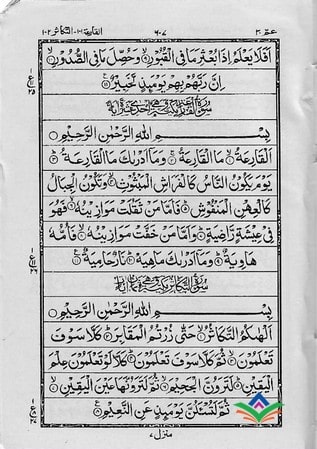 عم ٣٠ ٦٠٧ القارعة ١٠١ التكاثر ١٠٢
اَفَلَا يَعْلَمُ اِذَا بُعْثِرَ مَا فِي الْقُبُوْرِ وَحُصِّلَ مَا فِي الصُّدُوْرِ
اِنَّ رَبَّهُمْ بِهِمْ يَوْمَئِذٍ لَّخَبِيْرٌ
سُوْرَةُ الْقَارِعَةِ مَكِّيَّةٌ وَّهِيَ اِحْدٰى عَشْرَةَ اٰيَةً
بِسْمِ اللّٰهِ الرَّحْمٰنِ الرَّحِيْمِ
اَلْقَارِعَةُ مَا الْقَارِعَةُ وَمَآ اَدْرٰىكَ مَا الْقَارِعَةُ
يَوْمَ يَكُوْنُ النَّاسُ كَالْفَرَاشِ الْمَبْثُوْثِ وَتَكُوْنُ الْجِبَالُ
كَالْعِهْنِ الْمَنْفُوْشِ فَاَمَّا مَنْ ثَقُلَتْ مَوَازِيْنُهٗ فَهُوَ
فِيْ عِيْشَةٍ رَّاضِيَةٍ وَاَمَّا مَنْ خَفَّتْ مَوَازِيْنُهٗ فَاُمُّهٗ
هَاوِيَةٌ وَمَآ اَدْرٰىكَ مَاهِيَهْ نَارٌ حَامِيَةٌ
سُوْرَةُ التَّكَاثُرِ مَكِّيَّةٌ وَّهِيَ ثَمَانُ اٰيَاتٍ
بِسْمِ اللّٰهِ الرَّحْمٰنِ الرَّحِيْمِ
اَلْهٰىكُمُ التَّكَاثُرُ حَتّٰى زُرْتُمُ الْمَقَابِرَ كَلَّا سَوْفَ
تَعْلَمُوْنَ ثُمَّ كَلَّا سَوْفَ تَعْلَمُوْنَ كَلَّا لَوْ تَعْلَمُوْنَ عِلْمَ
الْيَقِيْنِ لَتَرَوُنَّ الْجَحِيْمَ ثُمَّ لَتَرَوُنَّهَا عَيْنَ الْيَقِيْنِ
ثُمَّ لَتُسْـَٔلُنَّ يَوْمَئِذٍ عَنِ النَّعِيْمِ
منزل ٧